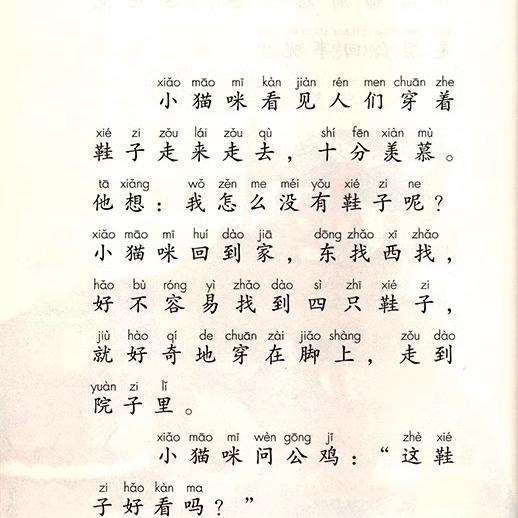 xiǎo māo mī kàn jiàn rén men chuān zhe
小猫咪看见人们穿着
xié zi zǒu lái zǒu qù shí fēn xiàn mù
鞋子走来走去，十分羡慕。
tā xiǎng wǒ zěn me méi yǒu xié zi ne
他想：我怎么没有鞋子呢？
xiǎo māo mī huí dào jiā dōng zhǎo xī zhǎo
小猫咪回到家，东找西找，
hǎo bù róng yì zhǎo dào sì zhī xié zi
好不容易找到四只鞋子，
jiù hào qí de chuān zài jiǎo shàng zǒu dào
就好奇地穿在脚上，走到
yuàn zi lǐ
院子里。
xiǎo māo mī wèn gōng jī zhè xié
小猫咪问公鸡：“这鞋
zi hǎo kàn ma
子好看吗？”